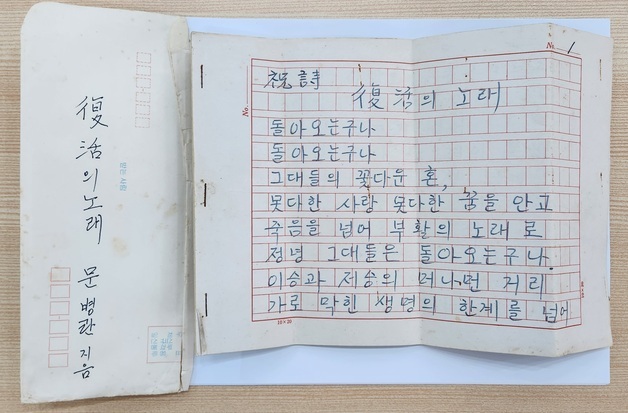 復活의 노래 문병란 지음
받는 사람
No. 1
祝詩
復活의 노래
돌아오는구나
돌아오는구나
그대들의 꽃다운 혼,
못다한 사랑 못다한 꿈을 안고
죽음을 넘어 부활의 노래로
정녕 그대들은 돌아오는구나.
이승과 저승의 머나먼 거리
가로 막힌 생명의 한계를 넘어
No.
10×20